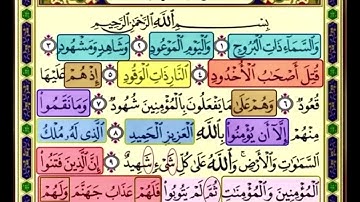 بِسْمِ ٱللَّهِ ٱلرَّحْمَٰنِ ٱلرَّحِيمِ
وَٱلسَّمَآءِ ذَاتِ ٱلْبُرُوجِ ١ وَٱلْيَوْمِ ٱلْمَوْعُودِ ٢ وَشَاهِدٍ وَمَشْهُودٍ ٣
قُتِلَ أَصْحَٰبُ ٱلْأُخْدُودِ ٤ ٱلنَّارِ ذَاتِ ٱلْوَقُودِ ٥ إِذْ هُمْ عَلَيْهَا
قُعُودٌ ٦ وَهُمْ عَلَىٰ مَا يَفْعَلُونَ بِٱلْمُؤْمِنِينَ شُهُودٌ ٧ وَمَا نَقَمُوا۟
مِنْهُمْ إِلَّآ أَن يُؤْمِنُوا۟ بِٱللَّهِ ٱلْعَزِيزِ ٱلْحَمِيدِ ٨ ٱلَّذِى لَهُۥ مُلْكُ
ٱلسَّمَٰوَٰتِ وَٱلْأَرْضِ ۚ وَٱللَّهُ عَلَىٰ كُلِّ شَىْءٍ شَهِيدٌ ٩ إِنَّ ٱلَّذِينَ فَتَنُوا۟
ٱلْمُؤْمِنِينَ وَٱلْمُؤْمِنَٰتِ ثُمَّ لَمْ يَتُوبُوا۟ فَلَهُمْ عَذَابُ جَهَنَّمَ وَلَهُمْ